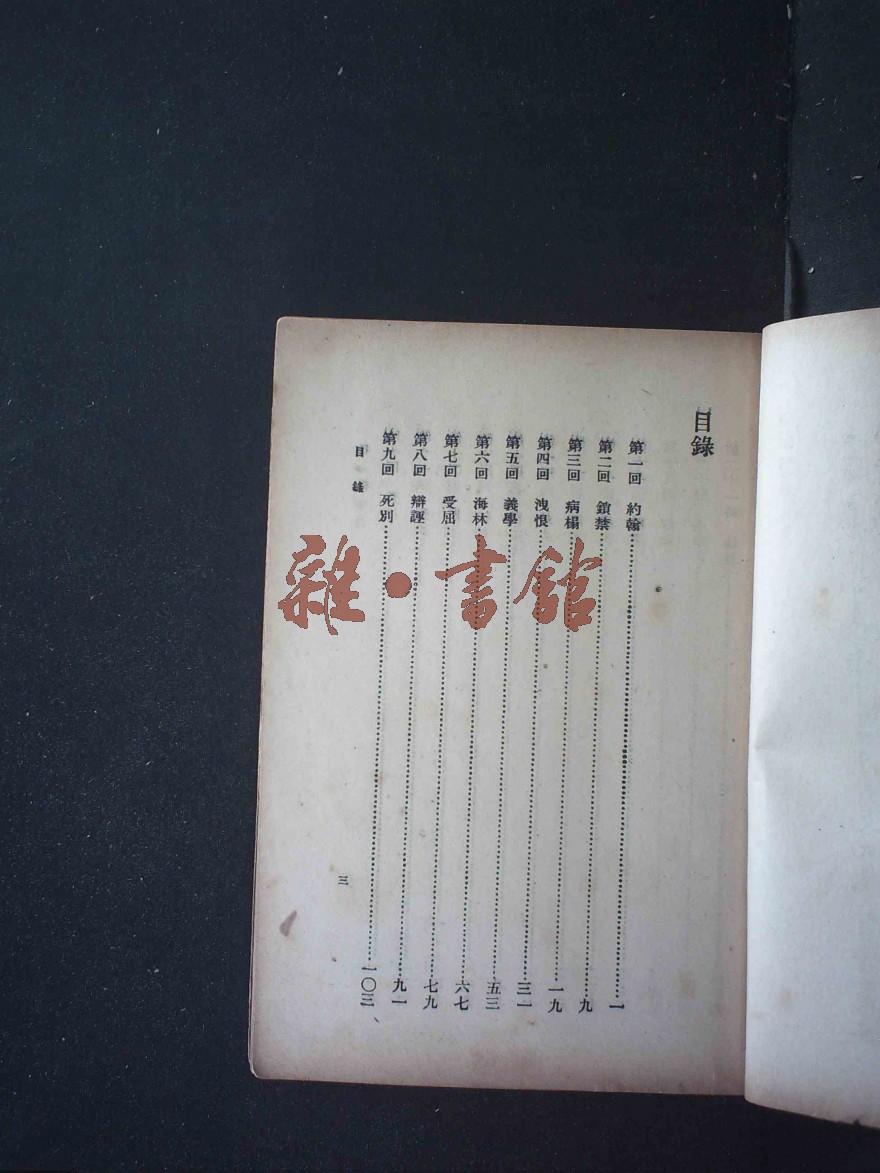 目錄
第一回 約翰……一
第二回 鎖禁……九
第三回 病榻……一九
第四回 洩恨……三一
第五回 義學……五三
第六回 海林……六七
第七回 受屈……七九
第八回 辯誣……九一
第九回 死別……一〇三
目錄
三
雜·書館